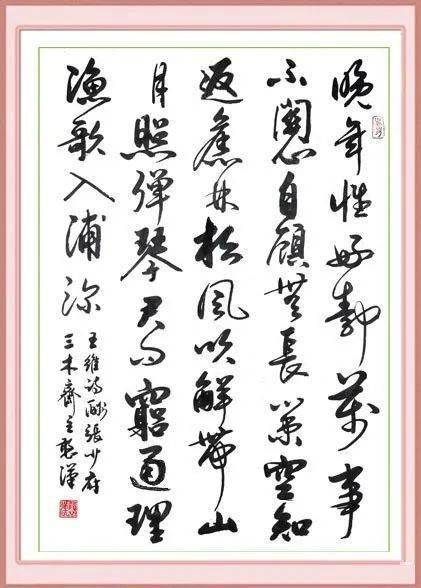 晚年惟好靜萬事
不關心自顧無長策空知
返舊林松風吹解帶山
月照彈琴君問窮通理
漁歌入浦深
王維詩酬張少府
三木齋主漢